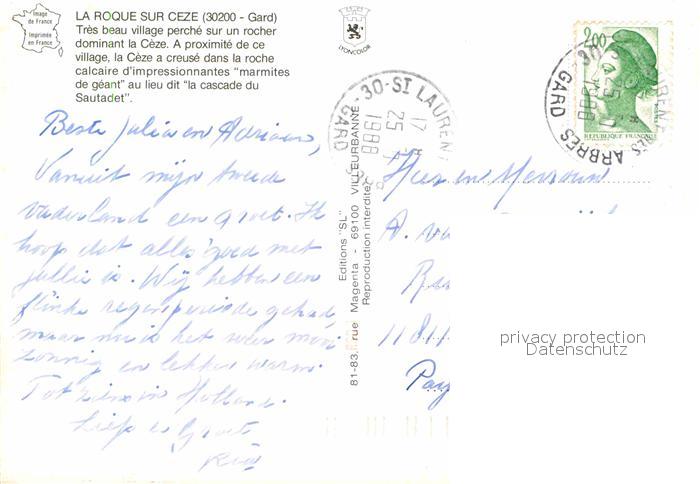 Image
de France
Imprimée
en France
LA ROQUE SUR CEZE (30200 - Gard)
Très beau village perché sur un rocher
dominant la Cèze. A proximité de ce
village, la Cèze a creusé dans la roche
calcaire d'impressionnantes "marmites
de géant" au lieu dit "la cascade du
Sautadet".
LYONCOLOR
Beste Julia en Adriaan,
Vanuit mijn tweede
vaderland een groet. Ik
hoop dat alles goed met
jullie is. Wij hebben een
flinke regenperiode gehad,
maar nu is het weer mooi
zonnig en lekker warm.
Tot ziens in Holland.
Liefs en Groet
Editions "SL"
81-83, rue Magenta - 69100 VILLEURBANNE
Reproduction interdite
30-ST LAURENT
17 H
25
1988
GARD
2,00
REPUBLIQUE FRANÇAISE
30
LAURENT DES ARBRES
25
1988
GARD
en Mevrouw
A. va
Pay
privacy protection
Datenschutz